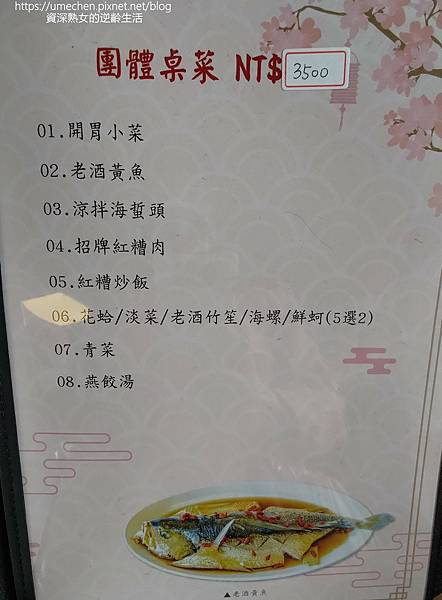 https://umechen.pixnet.net/blog
資深熟女的逆齡生活
團體桌菜 NT$ 3500
01.開胃小菜
02.老酒黃魚
03.涼拌海蜇頭
04.招牌紅糟肉
05.紅糟炒飯
06.花蛤/淡菜/老酒竹笙/海螺/鮮蚵(5選2)
07.青菜
08.燕餃湯
▲老酒黃魚